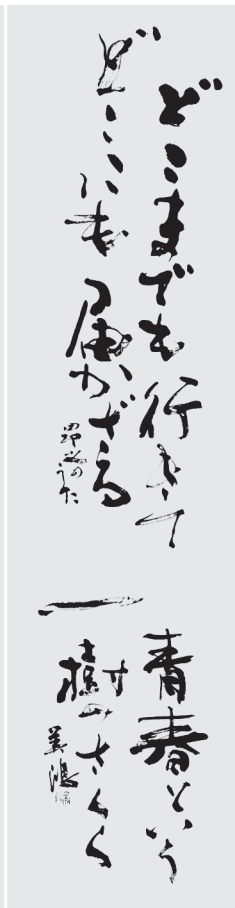 どこまでも行きて
どこにも届かざる
のうた
青春という
一樹のさくら
美鴻